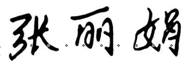 张丽娟